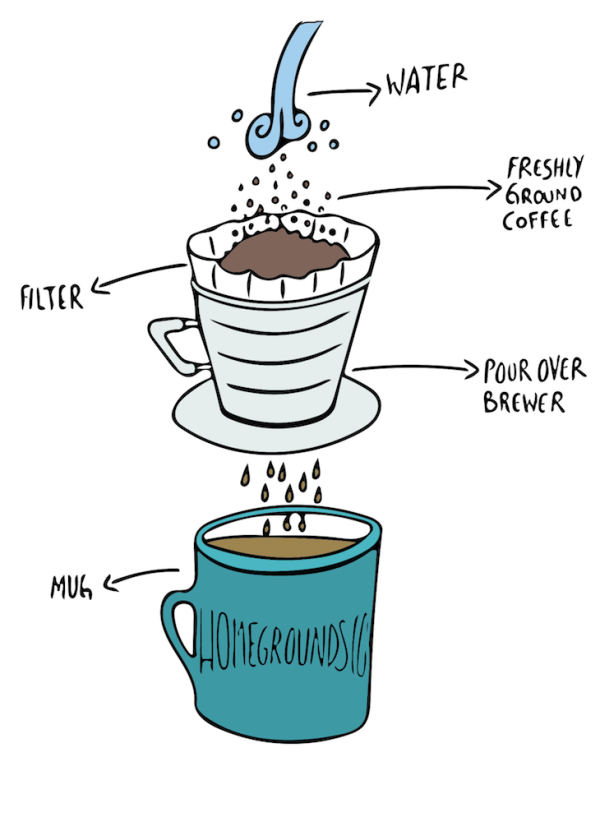 WATER
FRESHLY
GROUND
COFFEE
FILTER
POUR OVER
BREWER
MUG
HOMEGROUNDS